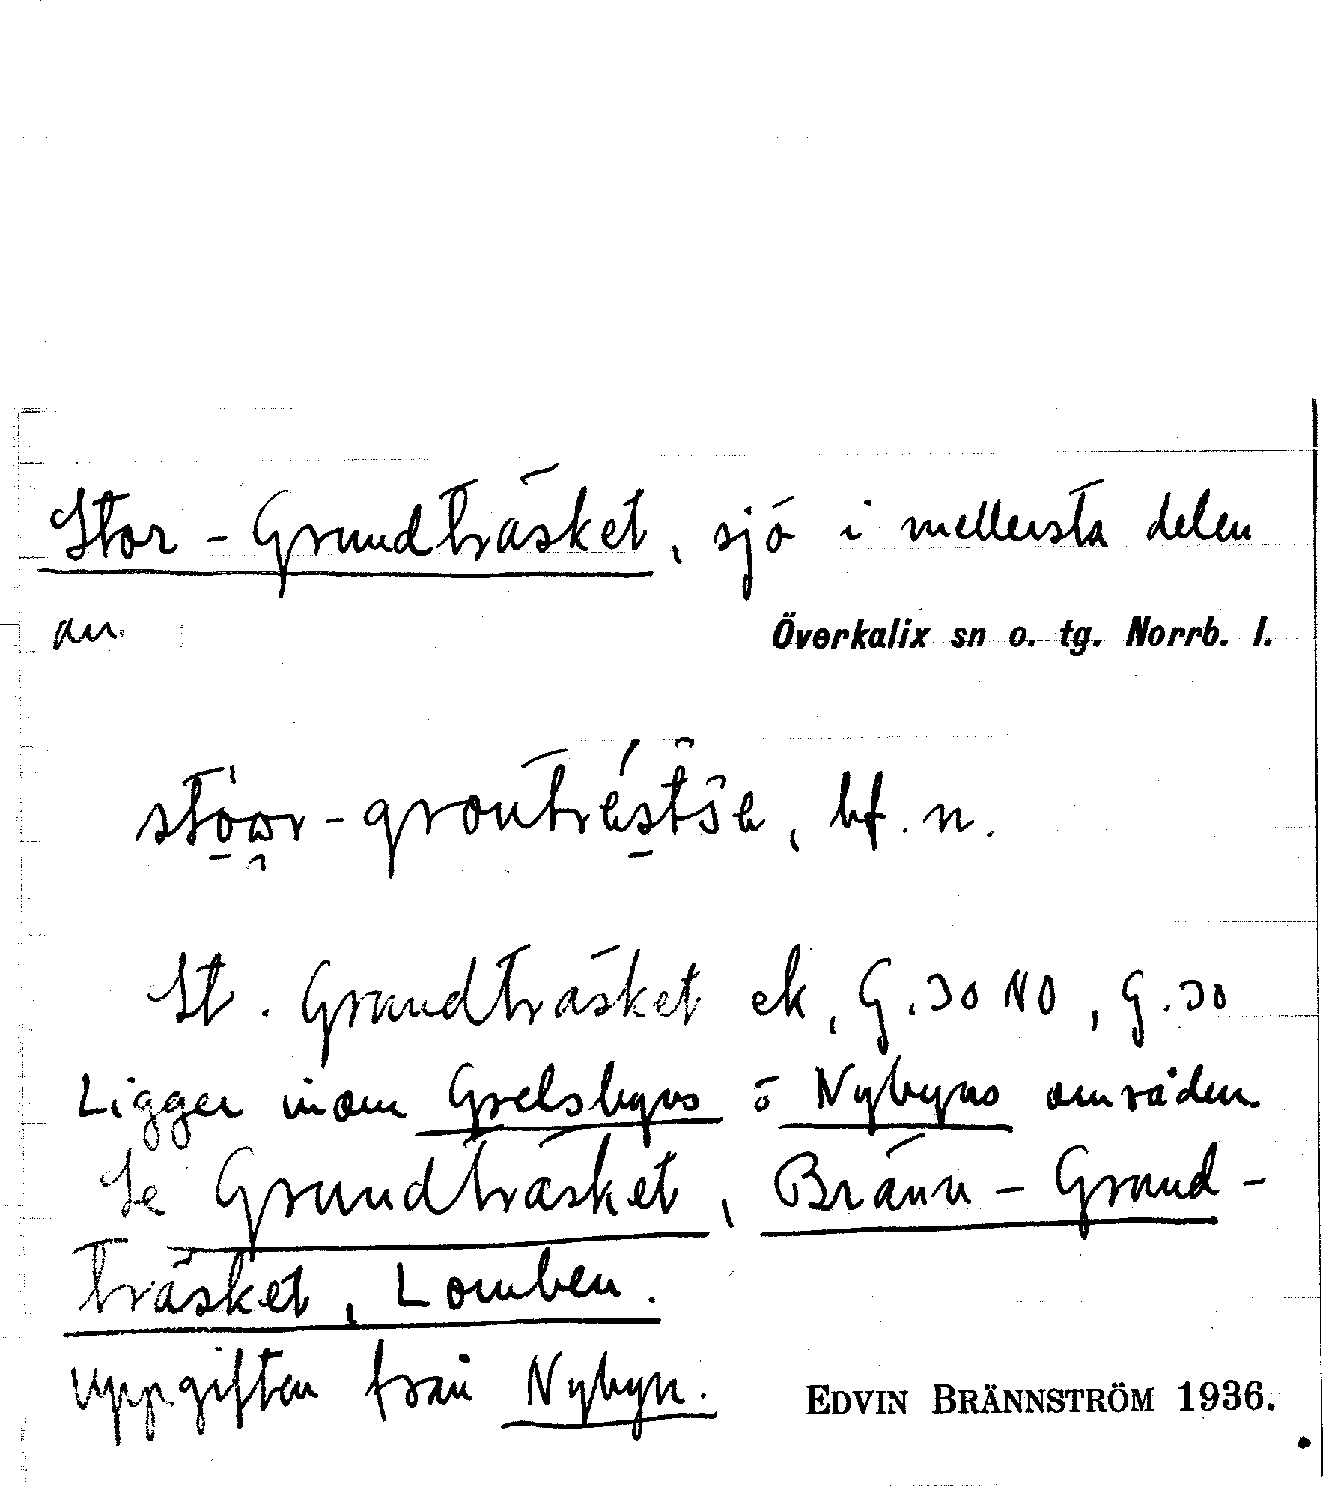 Stor-Grundträsket, sjö i mellersta delen
av Överkalix sn o. tg. Norrb. l.
bf. n.
St. Grundträsket ek, G.30 NO, G.30
Ligger inom Grelsbyns o Nybyns områden.
Se Grundträsket, Bränn-Grund-
träsket, Lomben.
Uppgiften från Nybyn. EDVIN BRÄNNSTRÖM 1936.